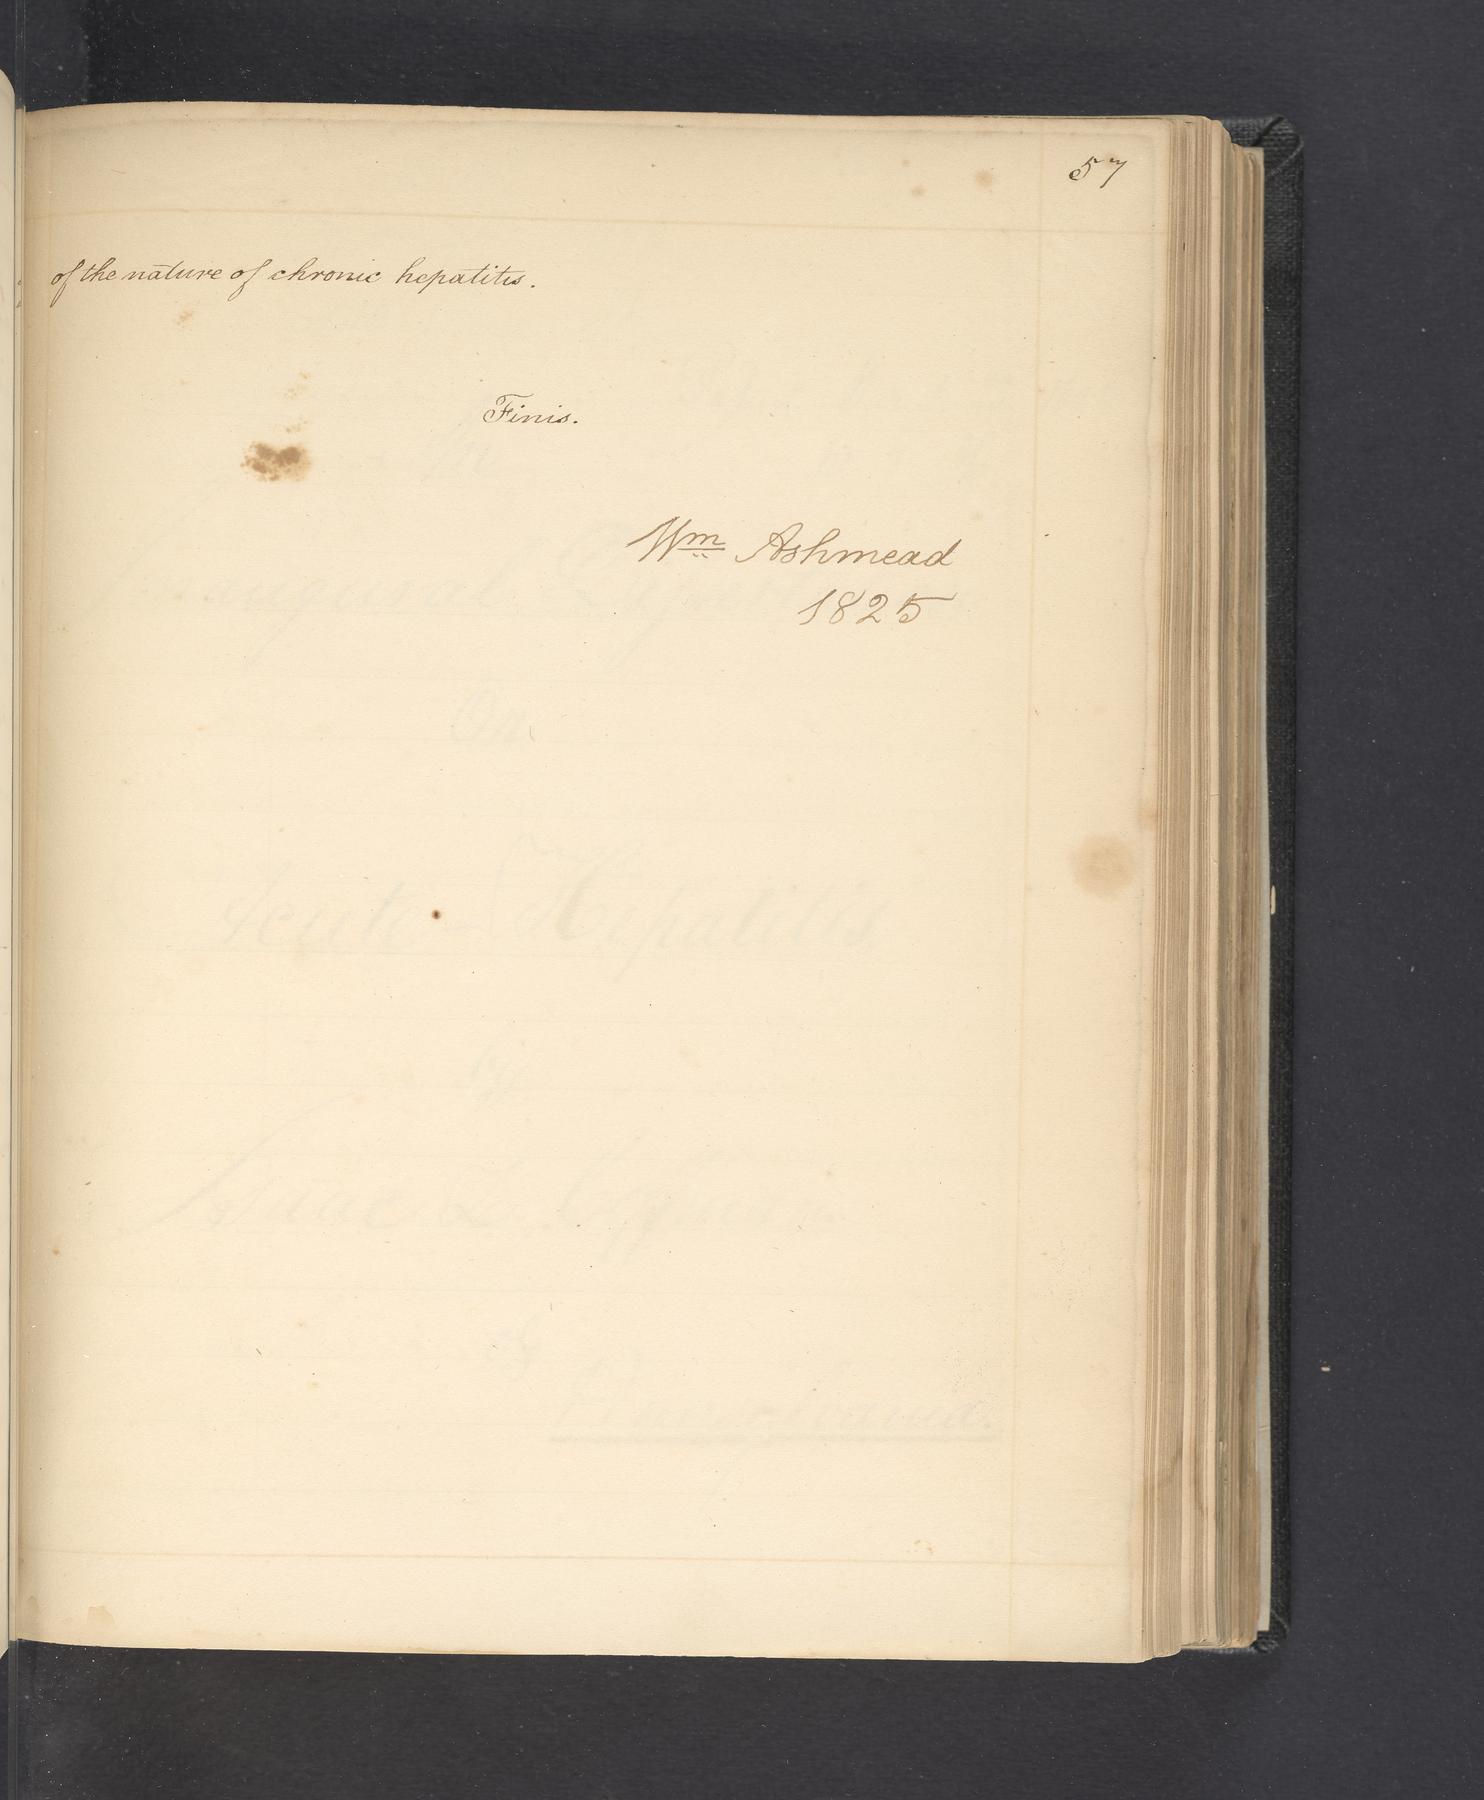 57
of the nature of chronic hepatitis.
Finis.
Wm Ashmead
1825